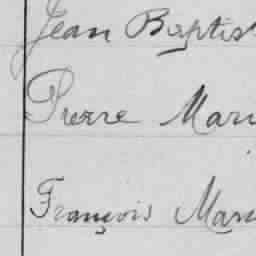 Jean Baptis
Pierre Mari
François Mari